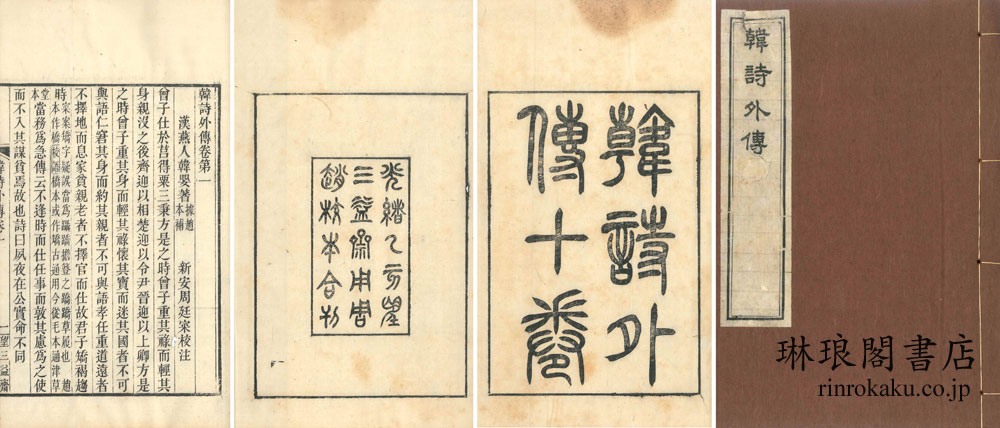 韓詩外傳
韓詩外
傳十卷
光緒乙亥望
三益齋用周
趙校本合刊
韓詩外傳卷第一
漢燕人韓嬰著 據趙本補 新安周廷寀校注
曾子仕於莒得粟三秉方是之時曾子重其祿而輕其
身親沒之後齊迎以相楚迎以令尹晉迎以上卿方是
之時曾子重其身而輕其祿懷其寶而迷其國者不可
與語仁窘其身而約其親者不可與語孝任重道遠者
不擇地而息家貧親老者不擇官而仕故君子矯褐趨
時
當務爲急傳云不逢時而仕任事而敦其慮爲之使
而不入其謀貧焉故也詩曰夙夜在公實命不同
一 望三益齋
琳琅閣書店
rinrokaku.co.jp